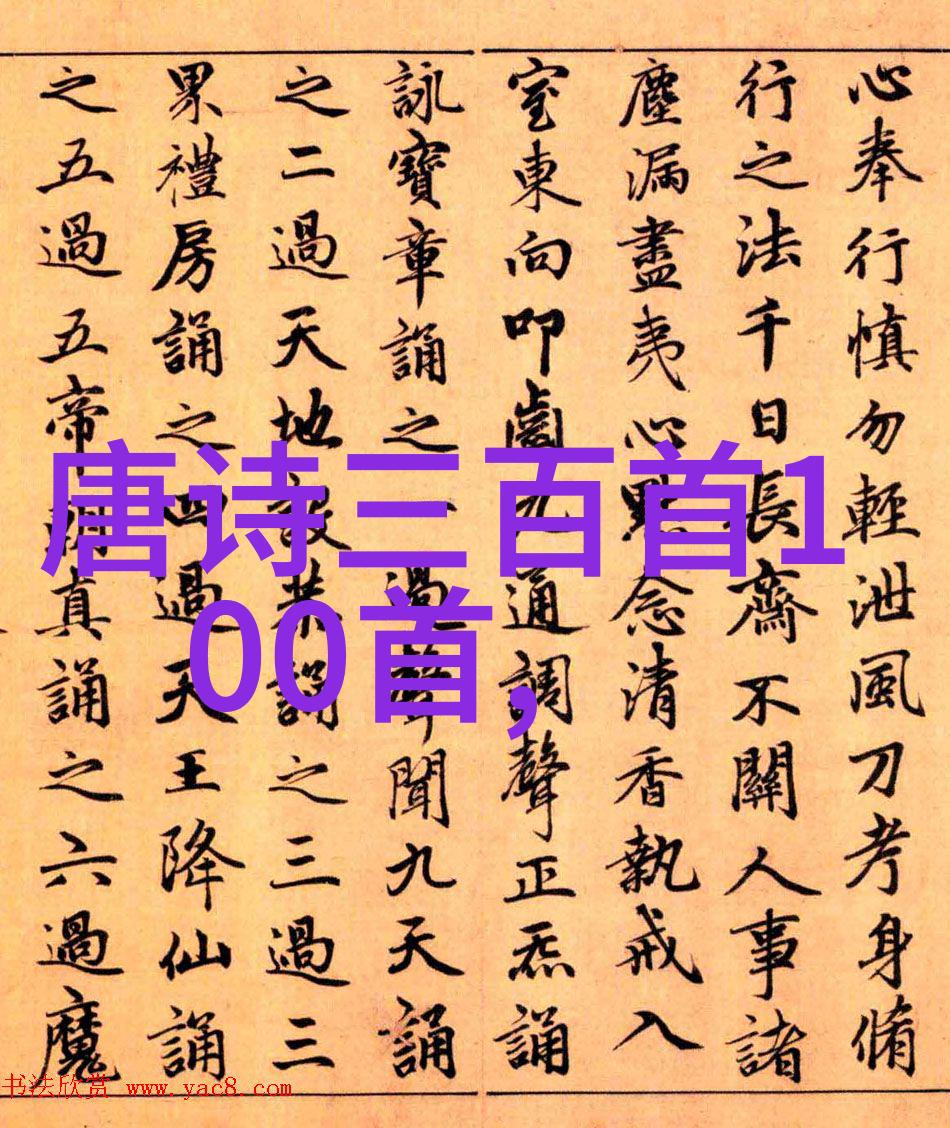 心奉行慎勿輕泄風刀考身脩
行之法千日長齋不關人事諸
塵漏盡夷心默念清香執戒入
室東向叩齒九通調聲正炁誦
詠寶章誦之一過聲聞九天誦
之二過天地設恭誦之三過三
界禮房誦之四過天王降仙誦
之五過五帝朝真誦之六過魔
唐诗三百首1
00首,
书法欣赏 www.yac8.com